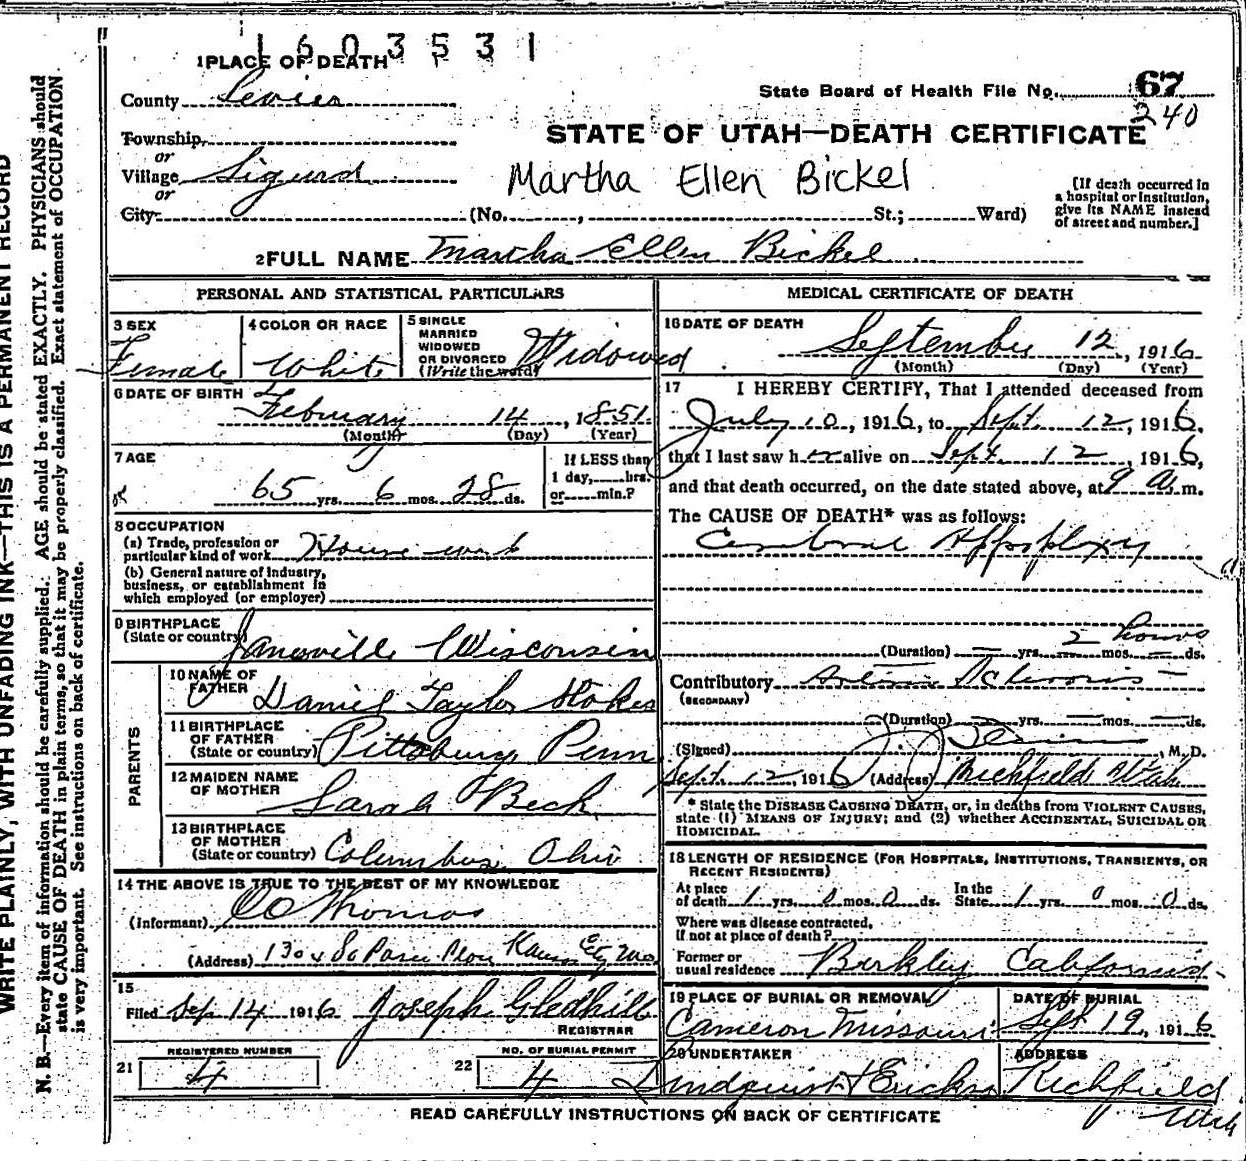 1603531
1 PLACE OF DEATH
County Sevier
State Board of Health File No. 67
240
Township
or
STATE OF UTAH—DEATH CERTIFICATE
Village Sigurd
or
Martha Ellen Bickel
City (No. , St.; Ward)
[If death occurred in
a hospital or institution,
give its NAME instead
of street and number.]
2 FULL NAME Martha Ellen Bickel
PERSONAL AND STATISTICAL PARTICULARS
3 SEX
Female
4 COLOR OR RACE
White
5 SINGLE
MARRIED
WIDOWED
OR DIVORCED
(Write the word)
Widowed
6 DATE OF BIRTH
February 14, 1851
(Month) (Day) (Year)
7 AGE
65 yrs. 6 mos. 28 ds.
If LESS than
1 day, hrs.
or min.?
8 OCCUPATION
(a) Trade, profession or
particular kind of work House work
(b) General nature of Industry,
business, or establishment in
which employed (or employer)
9 BIRTHPLACE
(State or country) Janesville Wisconsin
PARENTS
10 NAME OF
FATHER Daniel Taylor Stokes
11 BIRTHPLACE
OF FATHER
(State or country) Pittsburg Penn
12 MAIDEN NAME
OF MOTHER Sarah Beck
13 BIRTHPLACE
OF MOTHER
(State or country) Columbus, Ohio
14 THE ABOVE IS TRUE TO THE BEST OF MY KNOWLEDGE
(Informant) CO Thomas
(Address) 1304 So Kansas City Mo
15
Filed Sep 14 1916 Joseph Gledhill
REGISTRAR
21 REGISTERED NUMBER
4
22 NO. OF BURIAL PERMIT
4
MEDICAL CERTIFICATE OF DEATH
16 DATE OF DEATH
September 12, 1916
(Month) (Day) (Year)
17 I HEREBY CERTIFY, That I attended deceased from
July 10, 1916, to Sept. 12, 1916,
that I last saw her alive on Sept. 12, 1916,
and that death occurred, on the date stated above, at 9 a m.
The CAUSE OF DEATH* was as follows:
Cerebral Apoplexy
2 hours
(Duration) — yrs. — mos. — ds.
Contributory Sclerosis
(SECONDARY)
(Duration) — yrs. — mos. — ds.
(Signed) , M. D.
Sept. 12, 1916 (Address) Richfield Utah
* State the DISEASE CAUSING DEATH, or, in deaths from VIOLENT CAUSES,
state (1) MEANS OF INJURY; and (2) whether ACCIDENTAL, SUICIDAL OR
HOMICIDAL.
18 LENGTH OF RESIDENCE (FOR HOSPITALS, INSTITUTIONS, TRANSIENTS, OR
RECENT RESIDENTS)
At place
of death 1 yrs. 0 mos. 0 ds.
In the
State 1 yrs. 0 mos. 0 ds.
Where was disease contracted,
If not at place of death?
Former or
usual residence Birkley California
19 PLACE OF BURIAL OR REMOVAL
Cameron Missouri
DATE OF BURIAL
Sept 19, 1916
20 UNDERTAKER
Lindquist + Erickson
ADDRESS
Richfield
Utah
READ CAREFULLY INSTRUCTIONS ON BACK OF CERTIFICATE
WRITE PLAINLY, WITH UNFADING INK—THIS IS A PERMANENT RECORD
N. B.—Every item of information should be carefully supplied. AGE should be stated EXACTLY. PHYSICIANS should
state CAUSE OF DEATH in plain terms, so that it may be properly classified. Exact statement of OCCUPATION
is very important. See instructions on back of certificate.